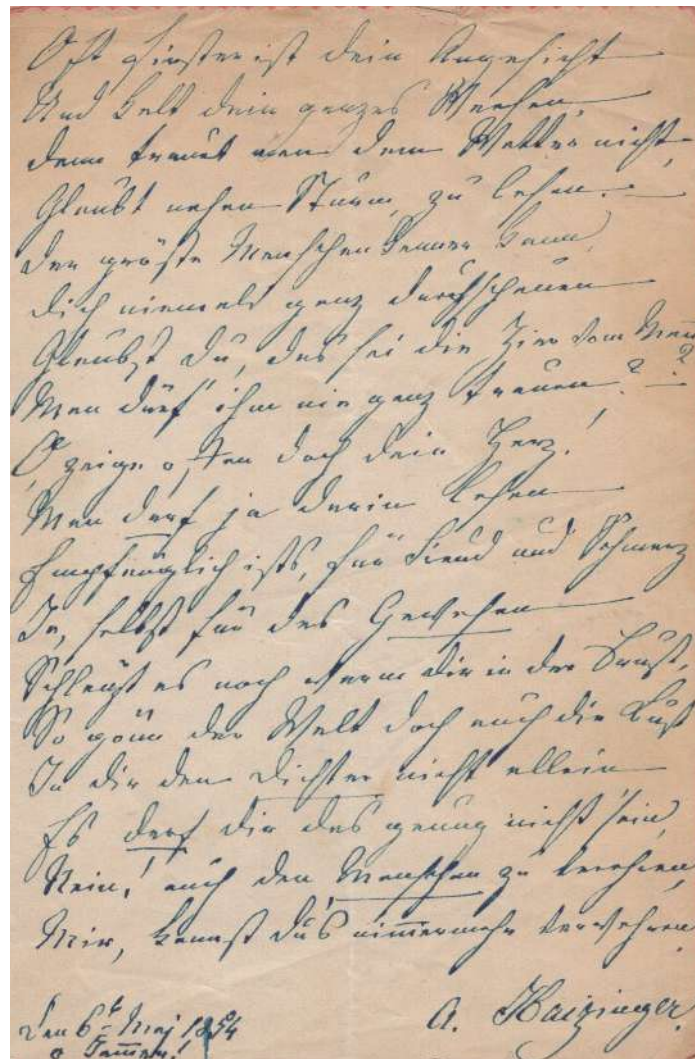 Oft finster ist dein Angesicht
Und kalt dein ganzes Wesen,
dann traut man dem Wetter nicht,
Glaubt nahen Sturm, zu lesen.
Der größte Menschenkenner kann,
dich niemals ganz durchschauen
Glaubst du, das sei die Zier vom Mann
Man dürf' ihm nie ganz trauen? ?
O, zeige doch dein Herz!
Man darf ja darin lesen
Empfänglich ists, für Freud und Schmerz
Ja, selbst für das Gewesen
Schlägt es noch warm dir in der Brust,
So gönn der Welt doch auch die Lust
In dir den Dichter nicht allein
Es darf dir das genug nicht sein,
Nein! auch den Menschen zu verehren
Mir, kannst dus nimmermehr verwehren
den 6t Maj 1854
A. Haizinger.
o Jammer!